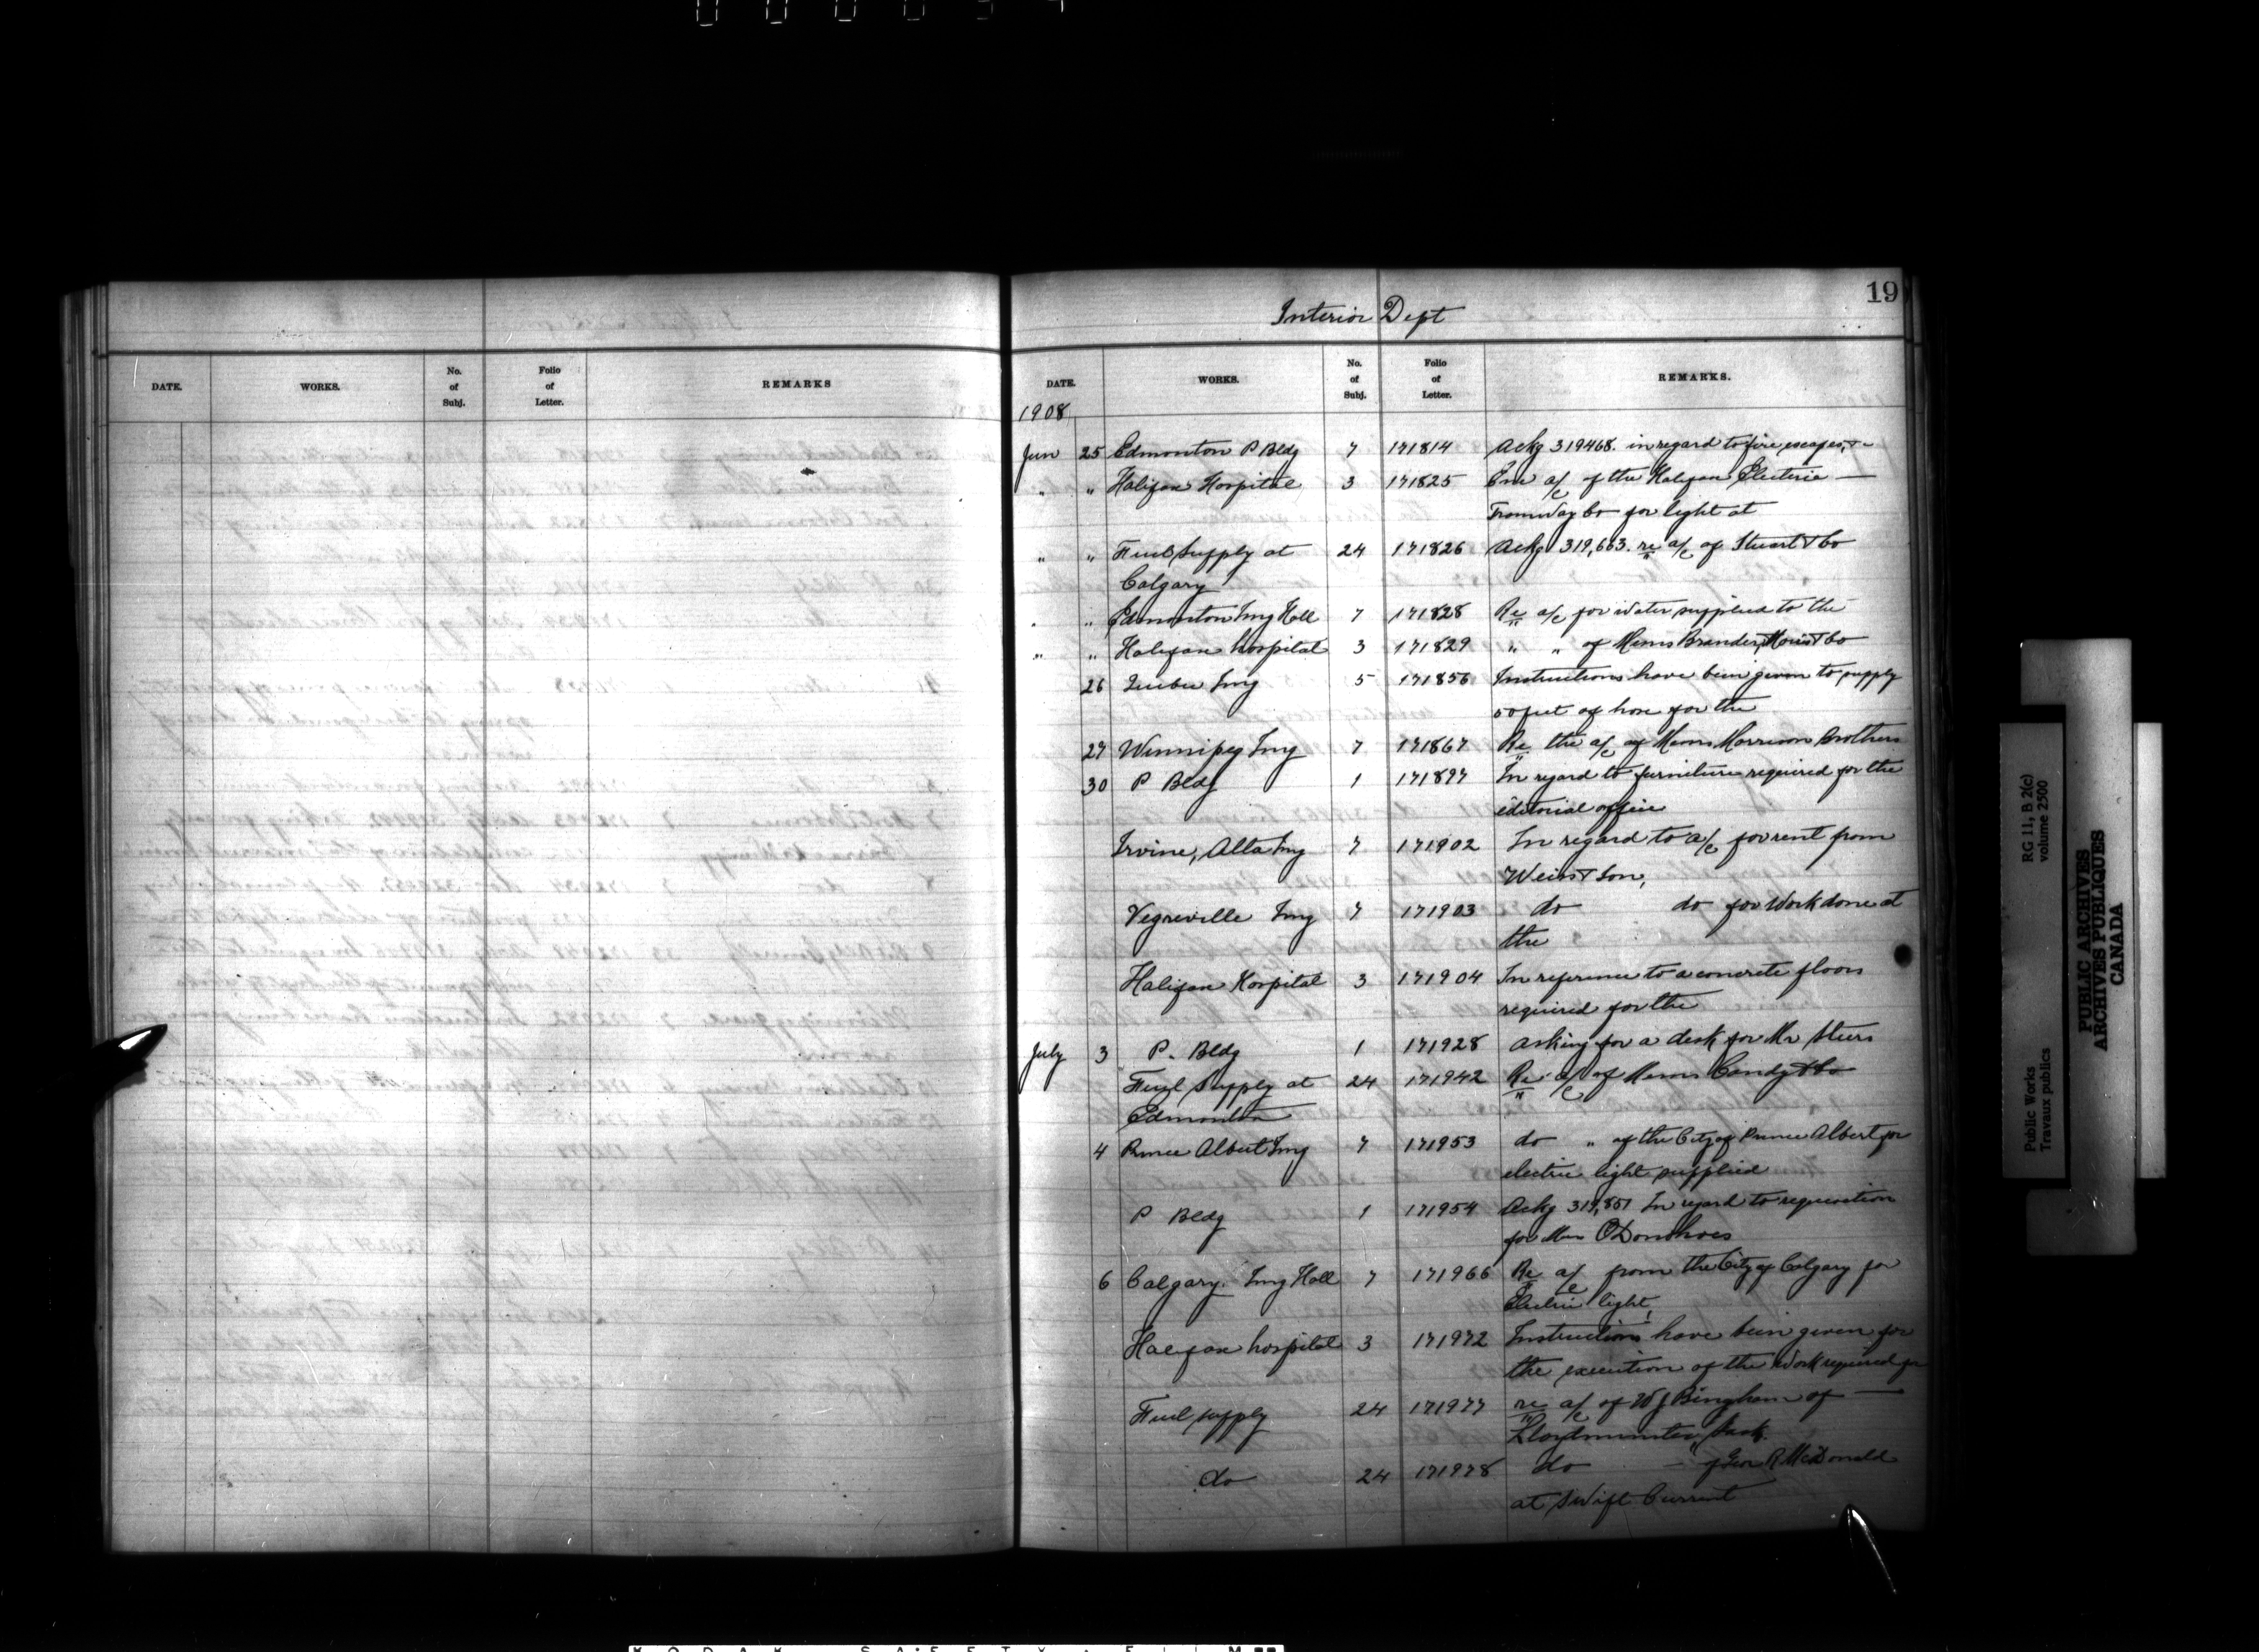 19
Interior Dept
DATE. WORKS. No. of Subj. Folio of Letter. REMARKS
DATE. WORKS. No. of Subj. Folio of Letter. REMARKS.
1908
Jun 25 Edmonton P Bldg 7 171814 Ackg 319468. in regard to fire escapes, &c
" " Halifax Hospital 3 171825 Enc a/c of the Halifax Electric —
Tramway Co for light at
" " Fuel Supply at 24 171826 Ackg 319,663. re a/c of Stuart & Co
Calgary
" Edmonton Img Hall 7 171828 Re a/c for water supplied to the
" " Halifax hospital 3 171829 " " of Messrs Brander, & Co
26 Quebec Img 5 171856 Instructions have been given to supply
50 feet of hose for the
27 Winnipeg Img 7 171867 Re the a/c of Messrs Morrison Brothers
30 P Bldg 1 171897 In regard to furniture required for the
editorial office
Irvine, Alta Img 7 171902 In regard to a/c for rent from
Weiss & Son,
Vegreville Img 7 171903 do do for work done at
the
Halifax Hospital 3 171904 In reference to a concrete floor
required for the
July 3 P. Bldg 1 171928 asking for a desk for Mr Steers
Fuel Supply at 24 171942 Re a/c of Messrs Candy & Co
Edmonton
4 Prince Albert Img 7 171953 do " of the City of Prince Albert for
electric light supplied
P Bldg 1 171954 Ackg 319,851 In regard to requisition
for O'Donohoes
6 Calgary. Img Hall 7 171966 Re a/c from the City of Calgary for
Electric light,
Halifax hospital 3 171972 Instructions have been given for
the execution of the work required for
Fuel supply 24 171977 re a/c of W J Bingham of —
Lloydminster, Sask.
do 24 171978 do — of Geo R McDonald
at Swift Current
Public Works
Travaux publics
RG 11, B 2(c)
volume 2500
PUBLIC ARCHIVES
ARCHIVES PUBLIQUES
CANADA